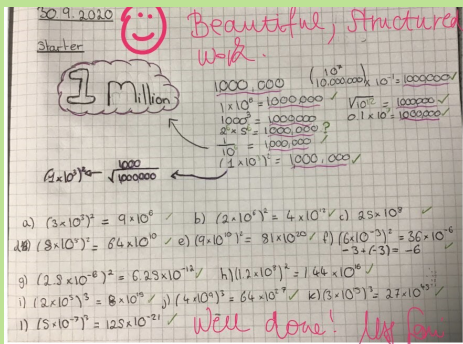 30.9.2020
Beautiful, structured work.
Starter
1 Million
1000,000
(10⁷
10,000,000) × 10⁻¹ = 1000000 ✓
1 × 10⁶ = 1000000 ✓
√10¹² = 1000000 ✓
1000² = 1000000
0.1 × 10⁷ = 1000000 ✓
2⁶ × 5⁶ = 1000,000 ?
= 1000,000 ✓
(1 × 10³)² = 1000,000 ✓
1000
√1000000
a) (3×10³)² = 9×10⁶ ✓ b) (2×10⁶)² = 4×10¹² ✓ c) 25×10⁸ ✓
d) (8×10⁵)² = 64×10¹⁰ ✓ e) (9×10¹⁰)² = 81×10²⁰ ✓ f) (6×10⁻³)² = 36×10⁻⁶
-3+(-3) = -6 ✓
g) (2.5×10⁻⁶)² = 6.25×10⁻¹² ✓ h) (1.2×10⁸)² = 1.44×10¹⁶ ✓
i) (2×10⁵)³ = 8×10¹⁵ ✓ j) (4×10⁹)³ = 64×10²⁷ ✓ k) (3×10¹⁵)³ = 27×10⁴⁵ ✓
l) (5×10⁻⁷)³ = 125×10⁻²¹ ✓ Well done!